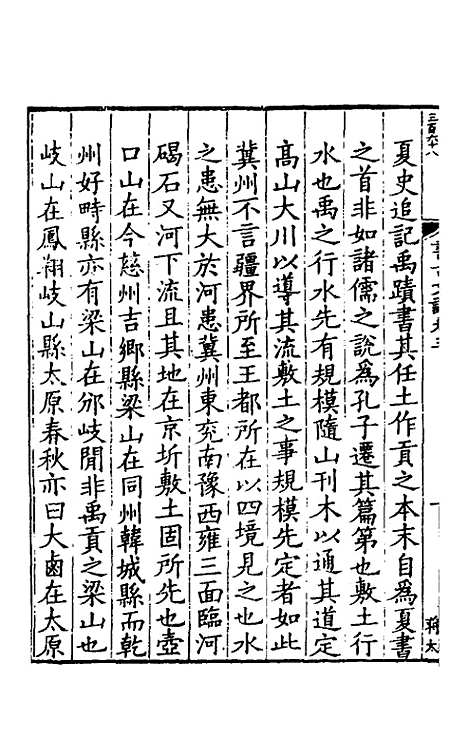 三百六十八
夏史追記禹蹟書其任土作貢之本末自爲夏書
之首非如諸儒之說爲孔子遷其篇第也敷土行
水也禹之行水先有規模隨山刊木以通其道定
高山大川以導其流敷土之事規模先定者如此
冀州不言疆界所至王都所在以四境見之也水
之患無大於河患冀州東兖南豫西雍三面臨河
碣石又河下流且其地在京圻敷土固所先也壺
口山在今慈州吉鄉縣梁山在同州韓城縣而乾
州好畤縣亦有梁山在邠岐閒非禹貢之梁山也
岐山在鳳翔岐山縣太原春秋亦曰大鹵在太原